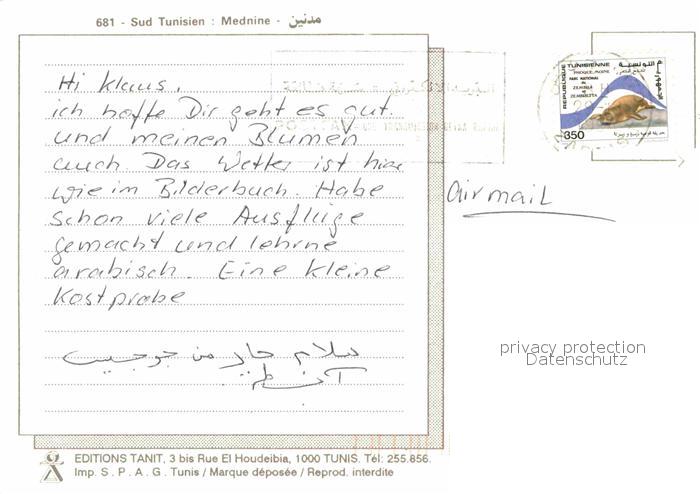 681 - Sud Tunisien : Mednine - مدنين
Hi Klaus,
ich hoffe Dir geht es gut
und meinen Blumen
auch. Das Wetter ist hier
wie im Bilderbuch. Habe
schon viele Ausflüge
gemacht und lehrne
arabisch. Eine kleine
Kostprobe
سلام من
airmail
REPUBLIQUE TUNISIENNE
PHOQUE MOINE
PARC NATIONAL
DE ZEMBRA
ET
ZEMBRETTA
350
privacy protection
Datenschutz
EDITIONS TANIT, 3 bis Rue El Houdeibia, 1000 TUNIS. Tél: 255.856.
Imp. S. P. A. G. Tunis / Marque déposée / Reprod. interdite